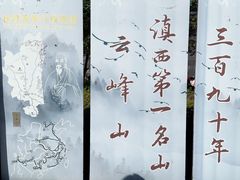 三百九十年
滇西第一名山
云峰山